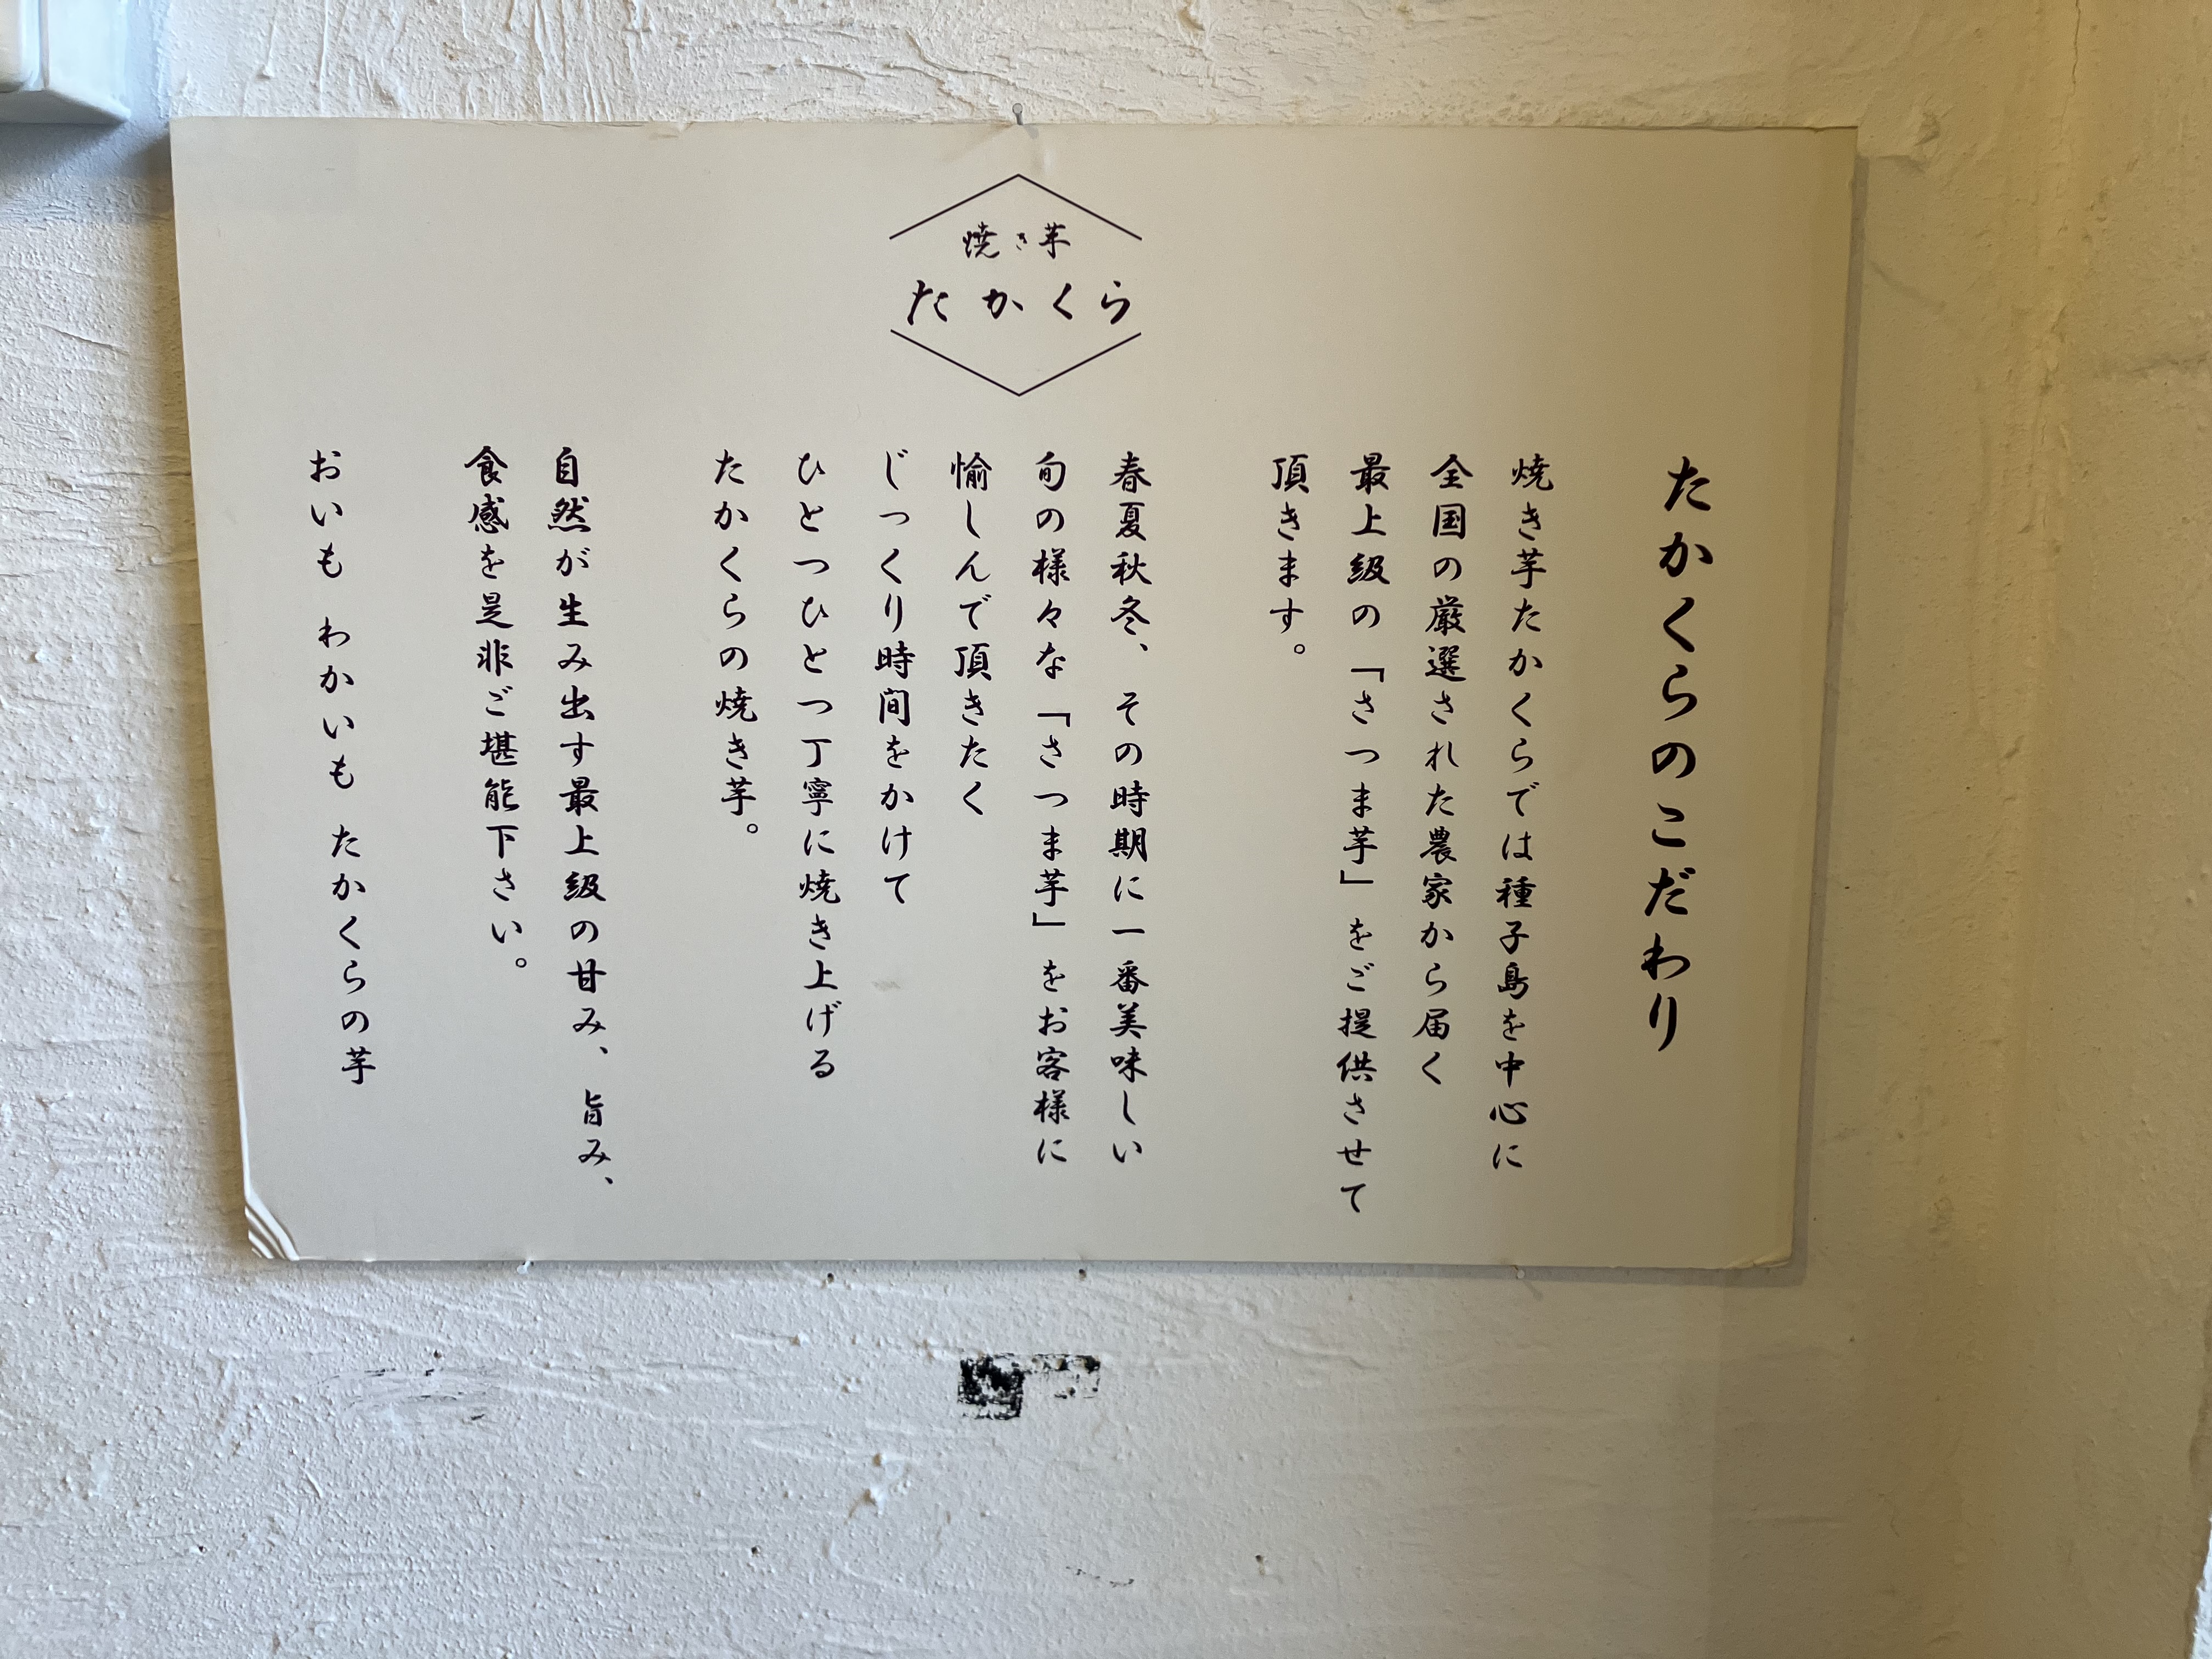 焼き芋
たかくら
たかくらのこだわり
焼き芋たかくらでは種子島を中心に
全国の厳選された農家から届く
最上級の「さつま芋」をご提供させて
頂きます。
春夏秋冬、その時期に一番美味しい
旬の様々な「さつま芋」をお客様に
愉しんで頂きたく
じっくり時間をかけて
ひとつひとつ丁寧に焼き上げる
たかくらの焼き芋。
自然が生み出す最上級の甘み、旨み、
食感を是非ご堪能下さい。
おいも わかいも たかくらの芋